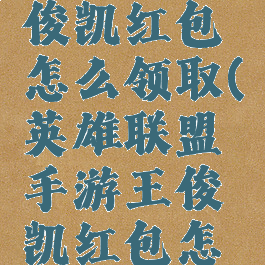 俊凯红包
怎么领取(
英雄联盟
手游王俊
凯红包怎